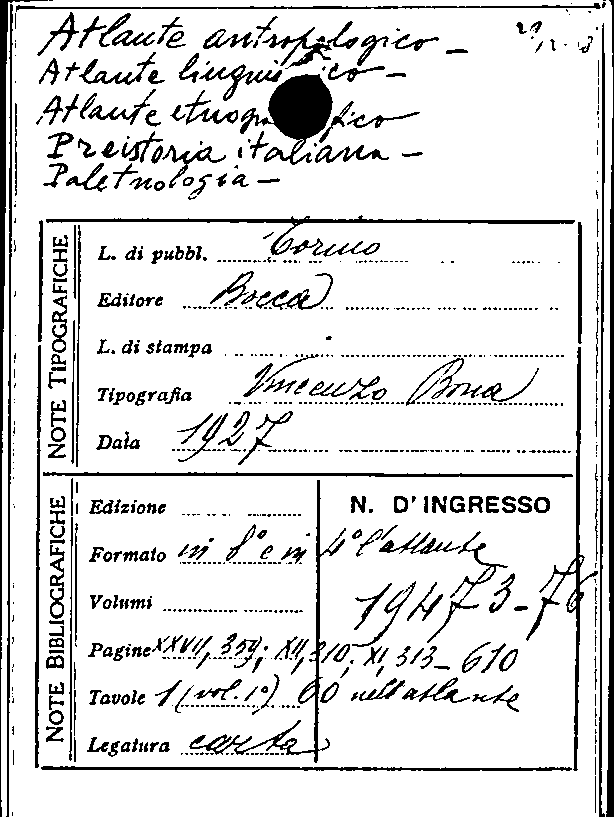 Atlante antropologico —
Atlante linguistico —
Atlante etnografico
Preistoria italiana —
Paletnologia —
NOTE TIPOGRAFICHE
L. di pubbl. Torino
Editore Bocca
L. di stampa
Tipografia Vincenzo Bona
Data 1927
NOTE BIBLIOGRAFICHE
Edizione
N. D'INGRESSO
Formato in 8° e in 4° l'atlante
Volumi
19473-76
Pagine XXVII, 359; XII, 310; XI, 313-610
Tavole 1 (vol. 1°) 60 nell'atlante
Legatura carta